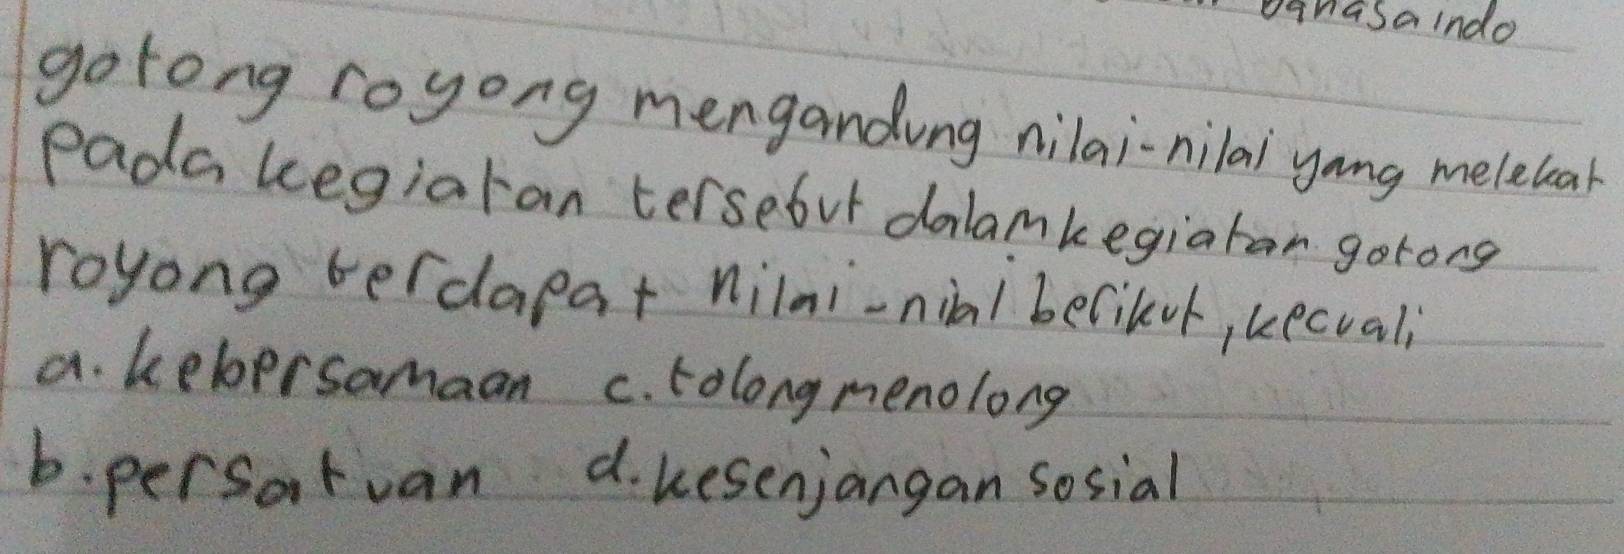 bahasa indo
gotong royong mengandung nilai-nilai yang melekat
pada kegiatan tersebut dalam kegiatan gotong
royong terdapat nilai-nial berikut, kecuali
a. kebersamaan c. tolong menolong
b. persatuan d. kesenjangan sosial